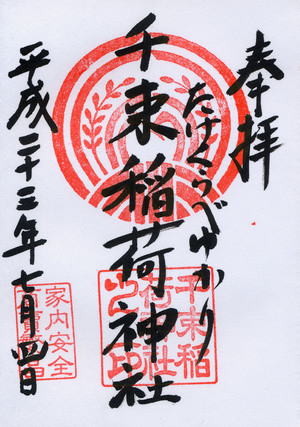 奉拝
たけくらべゆかり
千束稲荷神社
平成二十三年七月四日
千束稲
荷神社
家内安全